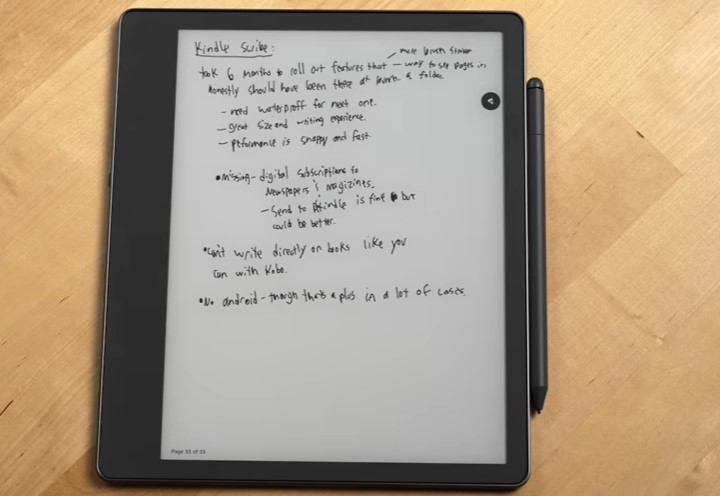 Kindle Scribe:
more brush strokes
took 6 months to roll out features that — way to see pages in
honestly should have been there at launch. a folder
- need waterproff for next one.
- great size and writing experience.
- peformance is snappy and fast
• Missing - digital subscriptions to
Newspapers & magizines.
- Send to Kindle is fine but
could be better.
• Can't write directly on books like you
can with Kobo.
• No android - though that's a plus in a lot of cases.
Page 33 of 33